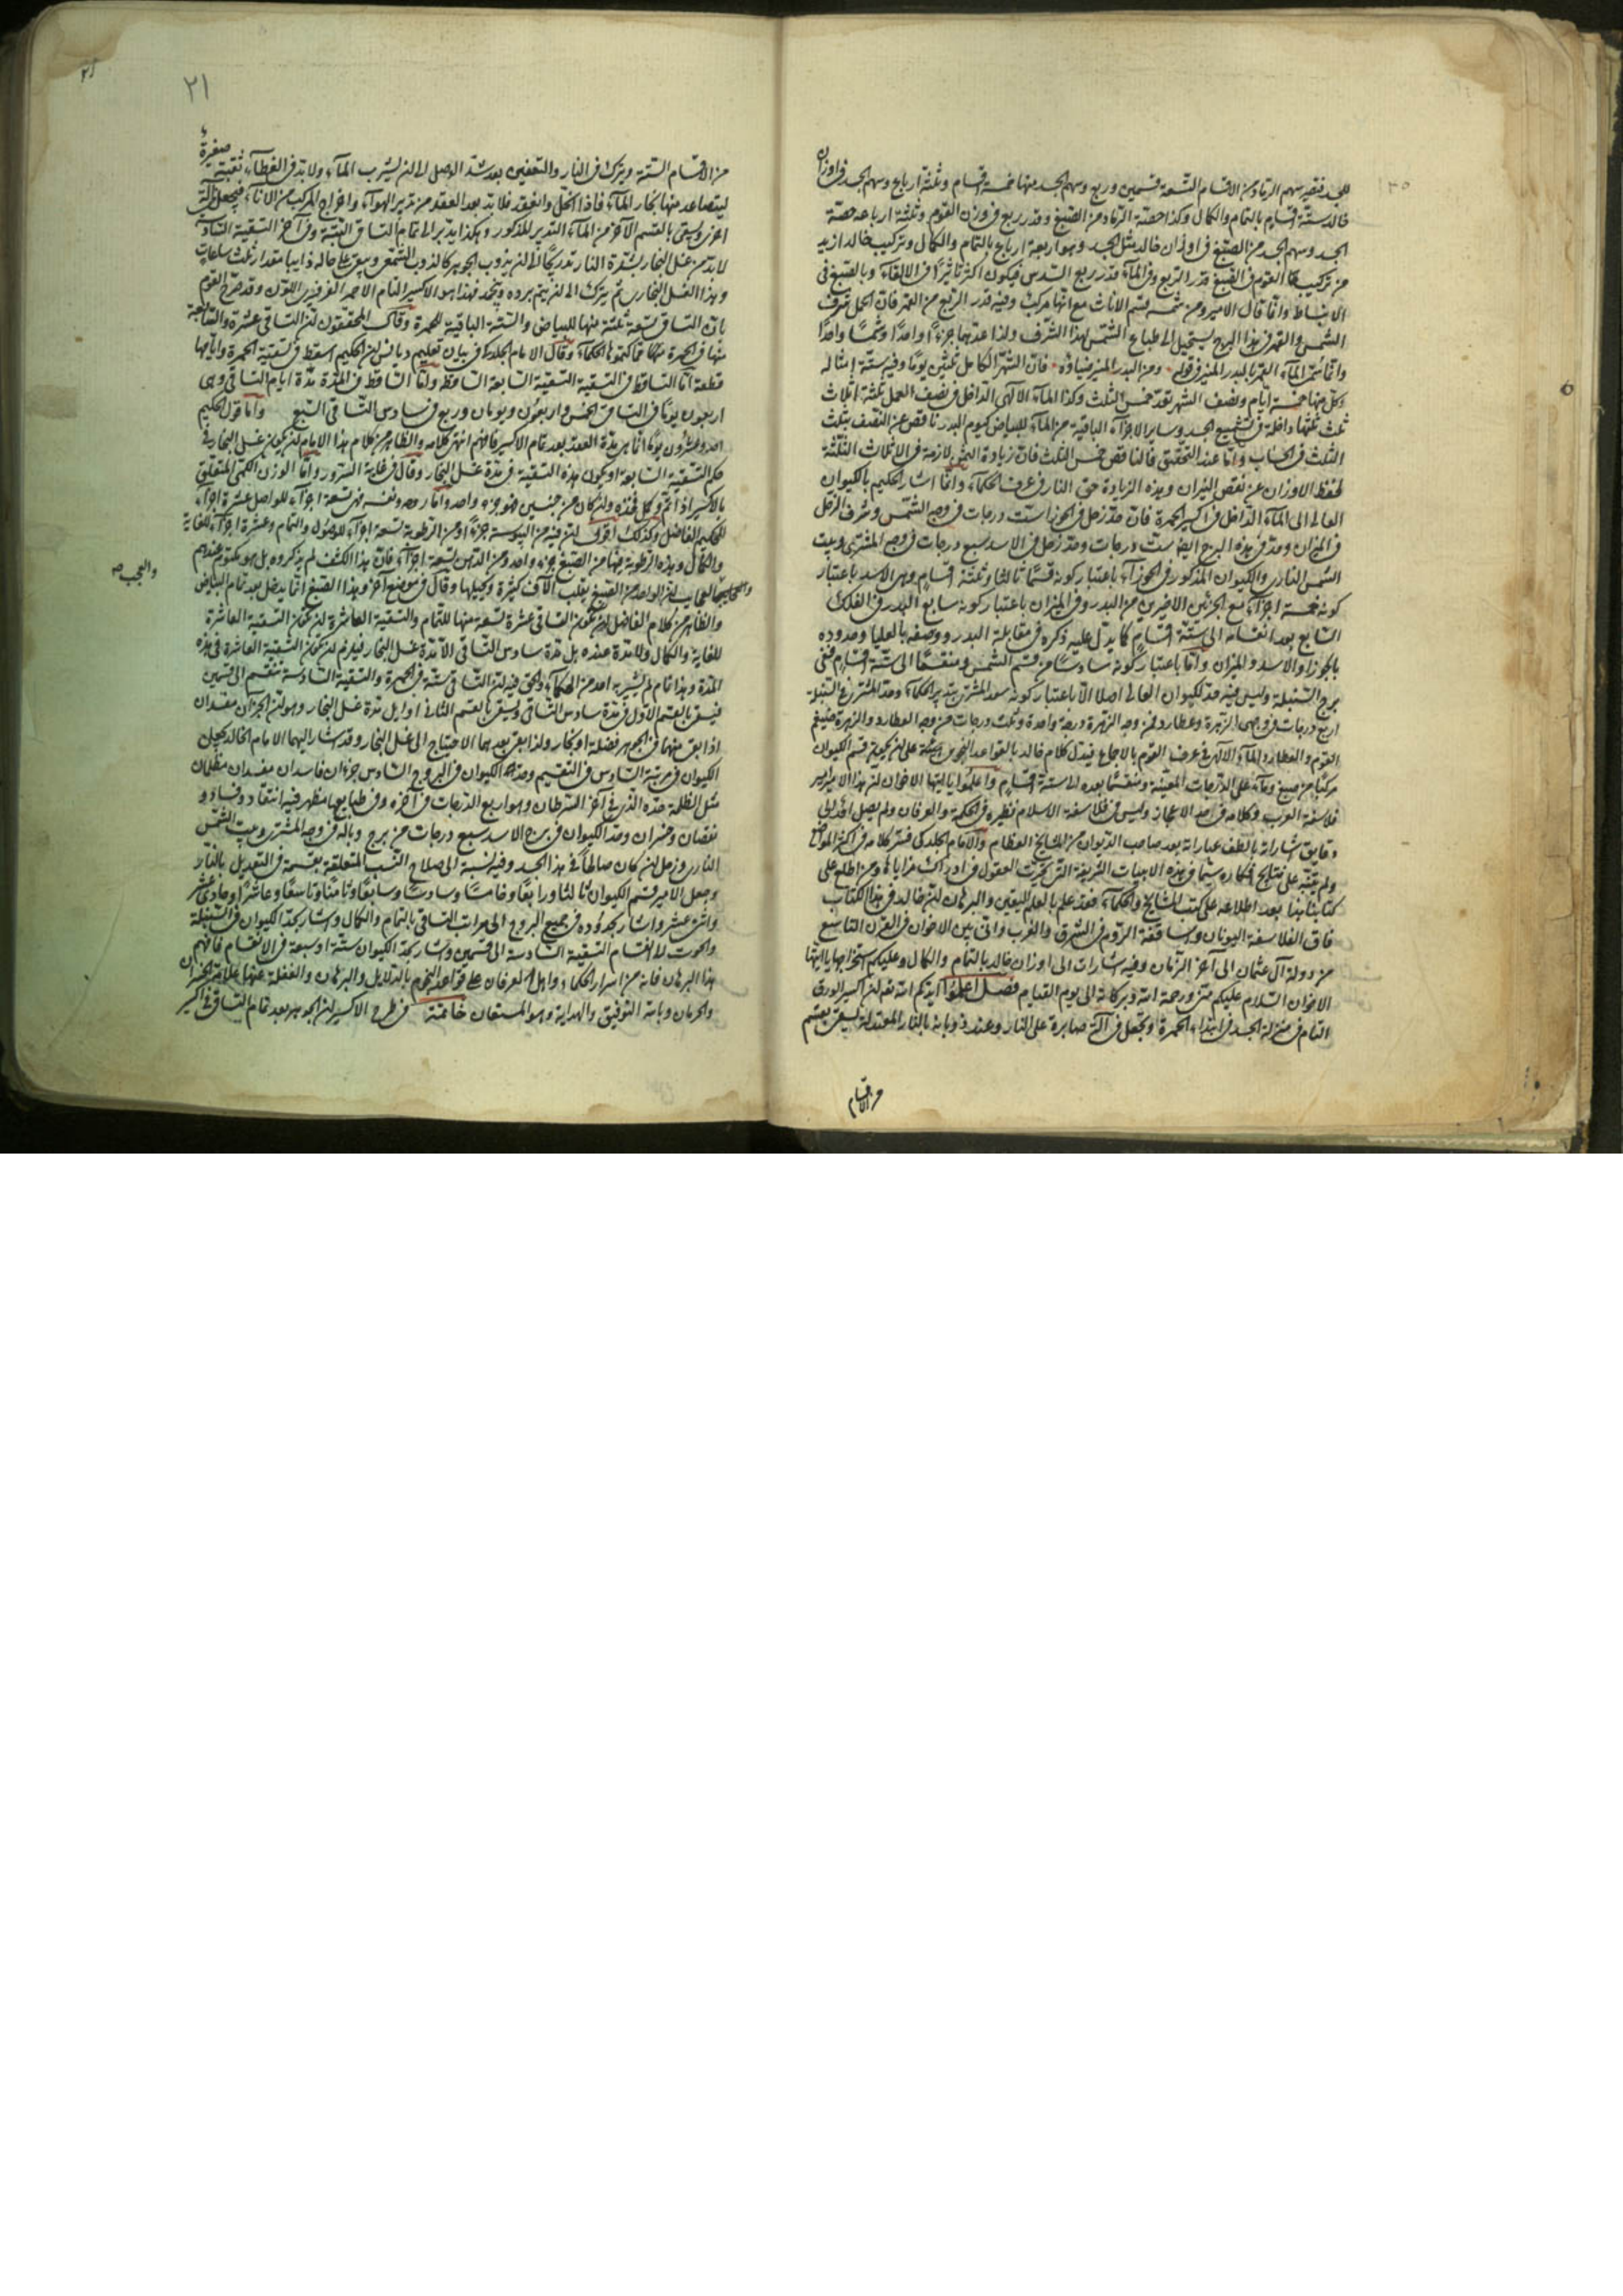 للجسد فتقدير سهم الرماد من الاقسام التسعة قسمين وربع وسهم الجسد منها خمسة اقسام وثلثة ارباع وسهم الجسد في اوزان
خالد ستة اقسام بالتمام والكمال وكذا حصة الرماد من الصبغ وقدر ربع في وزن القوم وثلثة ارباعه حصة
الجسد وسهم الجسد من الصبغ في اوزان خالد مثل الجسد وهو اربعة ارباع بالتمام والكمال وتركيب خالد ازيد
من تركيب القوم في الصبغ قدر الربع وفي الماء قدر ربع السدس فيكون اكثر تاثيرا في الالقاء وبالصبغ في
الانبساط وانما قال الامير ومن شمسه قسم الاناث مع انها مركب وفيه قدر الربع من القمر فان الحمل شرف
الشمس والقمر في هذا البرج يستحيل الى طباع الشمس لهذا الشرف ولذا عدهما جزءا واحدا وشمسا واحدا
وانما سمى الماء القمر بالبدر المنير في قوله ومن البدر المنير ضياؤه فان الشهر الكامل ثلثين يوما وفيه ستة امثاله
وكل منها خمسة ايام ونصف الشهر تعد خمس الثلث وكذا الماء الالهي الداخل في نصف العمل ثلثة اثلاث
ثلث ثلثها داخلة في تشميع الجسد وساير الاجزاء الباقية من الماء للبياض كيوم البدر ناقص عن النصف بثلث
الثلث في الحساب واما عند التحقيق فالناقص خمس الثلث فان زيادة لازمة في الاثلاث الثلثة
لحفظ الاوزان عن نقص النيران وهذه الزيادة حق النار في عرف الحكماء وانما اشار الحكيم بالكيوان
العالى الى الماء الداخل في اكسير الحمرة فان حد زحل في الجوزا ست درجات في وجه الشمس وشرف الزحل
في الميزان وحده في هذه البرج ايضا ست درجات وحد زحل في الاسد سبع درجات في وجه المشترى وبيت
الشمس النارى والكيوان المذكور في الجوزاء باعتبار كونه قسما ثالثا وثلثة اقسام وفي الاسد باعتبار
كونه خمسة اجزاء مع الجزئين الاخيرين من البدر وفي الميزان باعتبار كونه سابع البدر في الفلك
السابع بعد انقسامه الى ستة اقسام كما يدل عليه ذكره في مقابلة البدر ووصفه بالعليا وحدوده
بالجوزا والاسد والميزان واما باعتبار كونه سادسا من قسم الشمس ومنقسما الى ستة اقسام ففى
برج السنبلة وليس فيه حد لكيوان العالى اصلا الا باعتبار كونه سعد المشترى بتدبير الحكماء وحد المشترى في السنبلة
اربع درجات في وجهى الزهرة وعطارد فمن وجه الزهرة درجة واحدة وثلث درجات من وجه العطارد والزهرة صبغ
القوم والعطارد الماء الالهى في عرف القوم بالاجماع فيدل كلام خالد بالقواعد النجومية على ان يجعل قسم الكيوان
مركبا من صبغ وماء على الدرجات المعينة ومنقسما بعده الى ستة اقسام واعلموا يا ايها الاخوان ان هذا الامير من
فلاسفة العرب وكلامه في حد الاعجاز وليس في فلاسفة الاسلام نظيره في الحكمة والعرفان ولم يصل احد الى
دقايق اشاراته بالطف عباراته بعد صاحب الديوان من المشايخ العظام والامام الجلدكى فسر كلامه في اكثر المواضع
ولم ينبه على نتايج افكاره سيما في هذه الابيات الشريفة التى تحيرت العقول في ادراك مزاياها ومن اطلع على
كتابنا هذا بعد اطلاعه على كتب المشايخ والحكماء فقد علم بالعلم اليقين والبرهان ان خالد في هذا الكتاب
فاق الفلاسفة اليونان واساقفة الروم في الشرق والغرب واتى بين الاخوان في القرن التاسع
من دولة آل عثمان الى آخر الزمان وفيه اشارات الى اوزان خالد بالتمام والكمال وعليكم استخراجها يا ايها
الاخوان السلام عليكم منى ورحمة الله وبركاته الى يوم القيام فصل اعلموا ايدكم الله تعالى ان اكسير الورق
التام في منزلة الجسد في ابتداء الحمرة وتجعل في آلة صابرة على النار وعند ذوبانه بالنار المعتدلة يسقى بقسم
من الاقسام
٢١
من الاقسام الستة ويترك في النار والتعفين بعد شد الوصل الى ان يشرب الماء ولا بد في الغطاء ثقبة صغيرة
ليتصاعد منها بخار الماء فاذا انحل وانعقد فلا بد بعد العقد من تدبير الهواء واخراج المركب من الاناء فيجعل في آلة
اخرى ويسقى بالقسم الآخر من الماء بالتدبير المذكور وهكذا يدبر الى تمام التساقى الستة وفي آخر التسقية السادسة
لا بد من غسل البخار بشدة النار تدريجا الى ان يذوب الجوهر كالذوب الشمعى ويبقى على حاله ذايبا مقدار ثلث ساعات
وهذا الغسل البخارى ثم يترك الى ان يتم برده ويجمد فهذا هو الاكسير التام الاحمر الفرفيرى اللون وقد صرح القوم
بان التساقى تسعة ثلثة منها للبياض والستة الباقية للحمرة وقال المحققون ان التساقى عشرة والسابعة
منها في الحمرة مما كتموها الحكماء وقال الامام الجلدكى في بيان تعليم ديانس ان الحكيم اسقط في تسقية الحمرة وايامها
قطعة اما الساقط في التسقية التسقية السابعة الساقط واما الساقط في المدة مدة ايام التساقى وهى
اربعون يوما في التساقى الخمس واربعون ويومان وربع في سادس التساقى التسع واما قول الحكيم
احد وعشرون يوما انما هى مدة العقد بعد تمام الاكسير فافهم انتهى كلامه والظاهر من كلام هذا الامام ان يكون غسل البخار في
حكم التسقية السابعة او يكون هذه التسقية في مدة غسل البخار وقال في غاية السرور واما الوزن الكمى المتعلق
بالاكسير اذا تم وكل فخذه وان كان من جنسين فهو جزء واحد واما روحه ونفسه فهى تسعة اجزاء للواصل عشرة اجزاء
للحكيم الفاضل وكذلك اقول ان فيه من اليبوسة جزءا ومن الرطوبة تسعة اجزاء للاصول والتمام وعشرة اجزاء للغاية
والكمال وهذه الرطوبة فيها من الصبغ جزء واحد ومن الدهن تسعة اجزاء فان هذا الكشف لم يذكروه بل هو مكتوم عندهم
والعجب ان الواحد من الصبغ يقلب آلاف كثيرة ويحيلها وقال في موضع آخر وهذا الصبغ انما يدخل بعد تمام البياض
والعجب صح
والظاهر من كلام الفاضل ان تكون التساقى عشرة تسعة منها للتمام والتسقية العاشرة ان تكون التسقية العاشرة
للغاية والكمال ولا مدة عنده بل مدة سادس التساقى الا مدة غسل البخار فيلزم ان تكون التسقية العاشرة في هذه
المدة وهذا تام لم يشير به احد من الحكماء والحق فيه ان التساقى ستة في الحمرة والتسقية السادسة تنقسم الى قسمين
فيسقى بالقسم الاول في مدة سادس التساقى ويسقى بالقسم الثانى في اوايل مدة غسل البخار وهو ان الجزآن مفسدان
اذا بقى منهما في الجوهر فضلة او بخار ولذا بقى بعدهما الاحتياج الى غسل البخار وقد اشار اليهما الامام الخالد بجعل
الكيوان في مرتبة السادس في التقسيم وحد الكيوان في البروج السادس جزءان فاسدان مفسدان مظلمان
مثل الظلمة حده الذى في آخر السرطان وهو اربع الدرجات في آخره وفي طبايعها مظهر فيه انتقاد وفساد و
نقصان وخسران وحد الكيوان في برج الاسد سبع درجات من برج وباله في وجه المشترى وبيت الشمس
النارى وزحل ان كان صالحا في هذا الجسد وفيه نسبة الى صلاح النسب المتعلقة بقسمة في التعديل بالنار
وجعل الامير قسم الكيوان ثالثا ورابعا وخامسا وسادسا وسابعا وثامنا وتاسعا وعاشرا وحادى عشر
واثنى عشر واشار بحدوده في جميع البروج الى مراتب التساقى بالتمام والكمال واشار بحد الكيوان في السنبلة
والحوت لانقسام التسقية السادسة الى قسمين واشار بحد الكيوان ستة او سبعة في الانقسام فافهم
هذا البرهان فانه من اسرار الحكماء واهل العرفان على قواعد النجوم بالدلايل والبرهان والغفلة عنها علامة الخسران
والحرمان وبالله التوفيق والهداية وهو المستعان خاتمة في طرح الاكسير ان الجوهر بعد تمام التساقى في اكسير